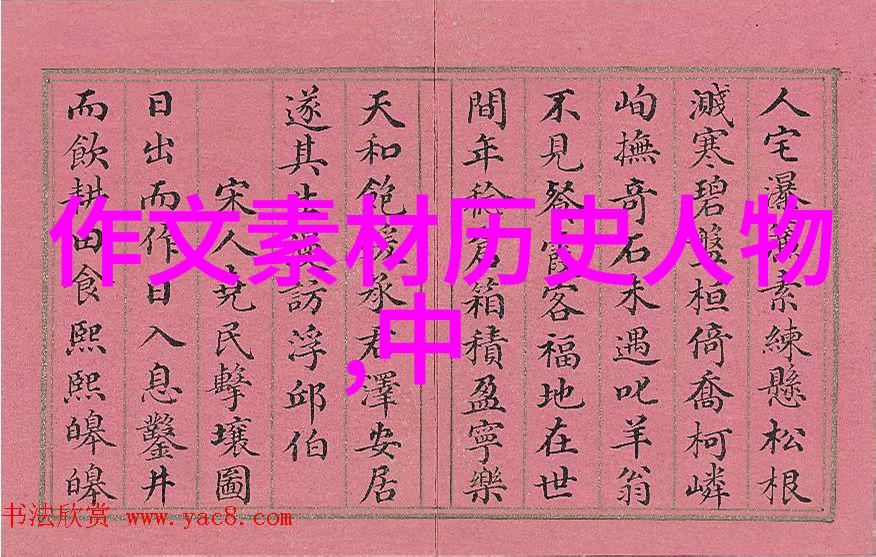 人宅瀑𣊻素練懸松根
濺寒碧盤桓倚喬柯嶙
峋撫奇石未遇叱羊翁
不見餐霞客福地在世
間年給倉箱積盈寧樂
天和飽德承君澤安居
遂其生無訪浮邱伯
宋人堯民擊壤圖
日出而作日入息鑿井
而飲耕田食熙熙皞皞
作文素材历史人物
,中
书法欣赏 www.yac8.com